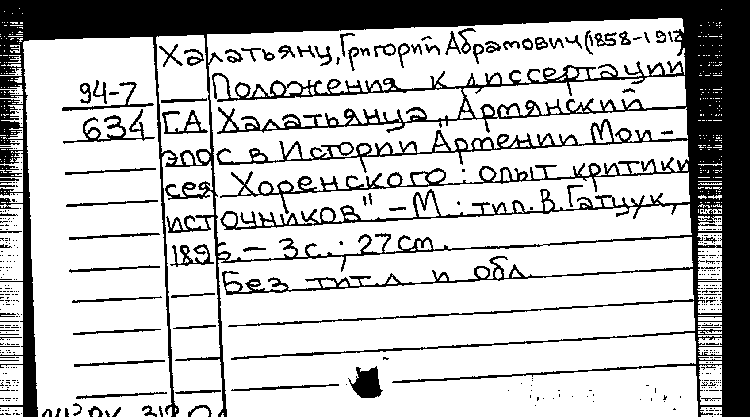 Халатьянц, Григорий Абрамович (1858-1912)
94-7 Положения к диссертации
634 Г.А Халатьянца „Армянский
эпос в Истории Армении Мои-
сея Хоренского : опыт критики
источников". - М. : тип. В. Гатцук,
1896. - 3 с. ; 27 см.
Без тит. л и обл.